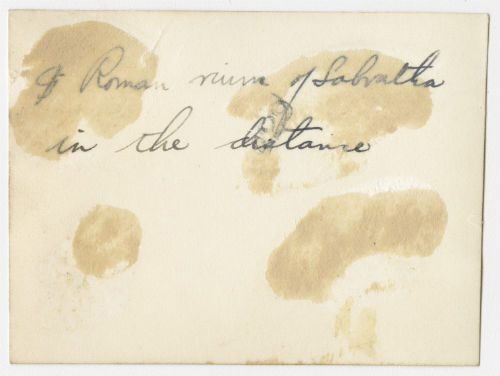 Roman ruins of Sabratha
in the distance